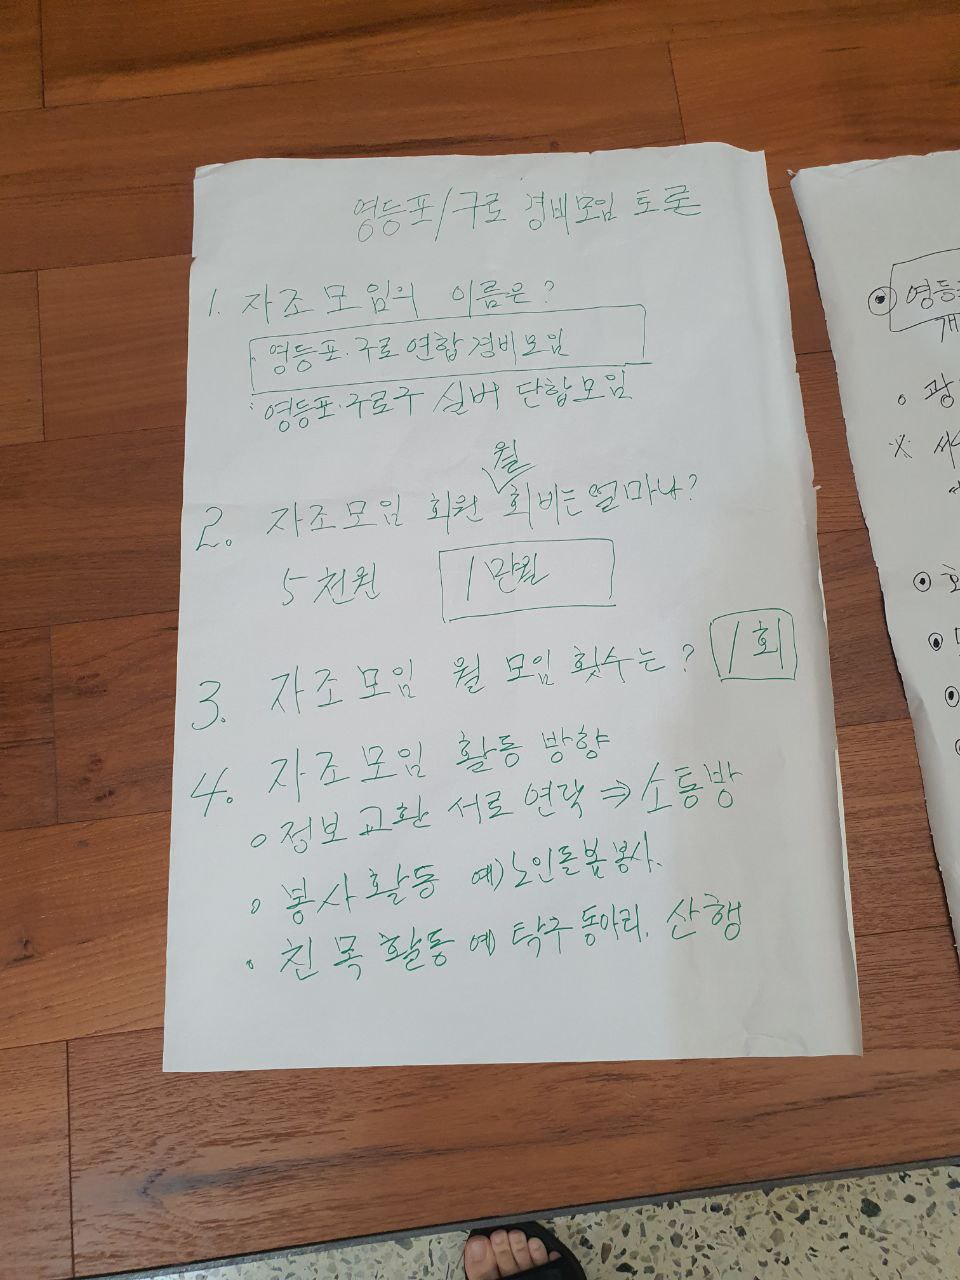 영등포/구로 경비모임 토론
1. 자조모임의 이름은?
영등포.구로 연합경비모임
영등포.구로구 실버 단합모임
월
2. 자조모임 회원 회비는 얼마나?
5천원 1만원
3. 자조모임 월 모임 횟수는? 1회
4. 자조모임 활동 방향
○ 정보교환 서로 연락 ⇒ 소통방
○ 봉사활동 예)노인돌봄봉사.
○ 친목활동 예) 탁구동아리. 산행
영등포
개
○ 광
※